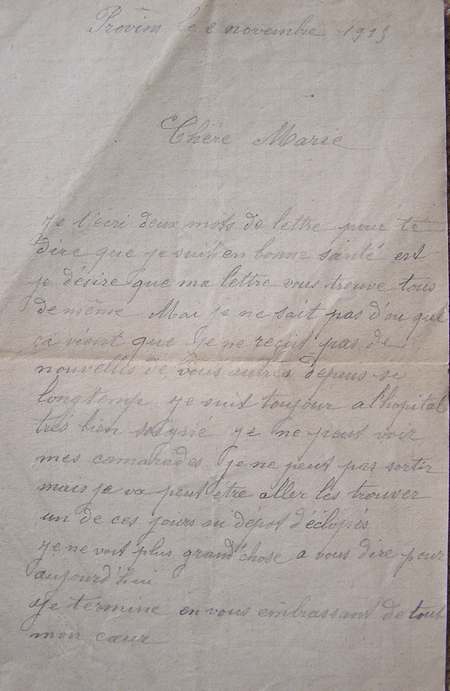 Provins le 2 novembre 191
Chère Marie
Je t'écri deux mots de lettre pour te
dire que je suit en bonne santé est
je désire que ma lettre vous trouve tous
de même Moi je ne sait pas d'ou que
ça vient que je ne reçoit pas de
nouvelles de vous autres depuis si
longtemp je suis toujour a l'hopital
très bien soignie je ne peut voir
mes camarades je ne peut pas sortir
mais je va peut être aller les trouver
un de ces jours au dépot d'éclopés
je ne voit plus grand'chose a vous dire pour
aujourd'hui
Je termine en vous embrassant de tout
mon cœur